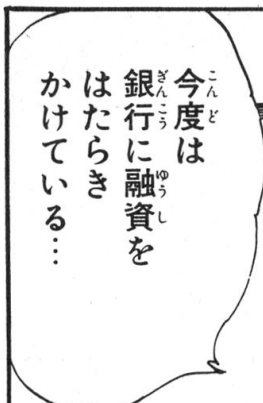 今度は
銀行に融資を
はたらき
かけている…